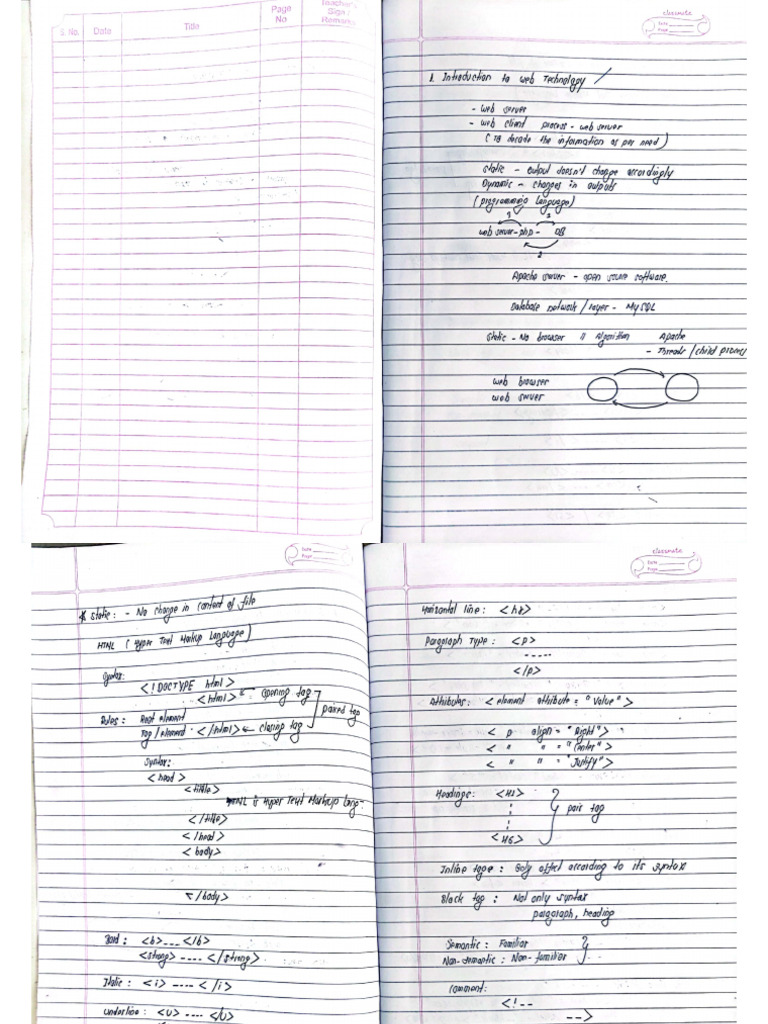 S. No. Date Title Page No Teacher's Sign / Remarks
classmate
Date
Page
1. Introduction to web Technology
- web server
- web client process - web server
( To decode the information as per need )
Static - output doesn't change accordingly
Dynamic - changes in outputs
( programming language )
1 3
web server - php - DB
2
Apache server - open source software.
Database network / layer - MySQL
Static - No browser Algorithm Apache
- Threads / child process
web browser
web server
Date
Page
* Static : - No change in content of file
HTML ( Hyper Text Markup Language )
Syntax:
<!DOCTYPE html>
<html> ← opening tag
paired tag
Rules : Root element
Tag / element </html> ← closing tag
Syntax:
<head>
<title>
HTML is Hyper Text Markup Lang.
</title>
</head>
<body>
</body>
Bold : <b> ---- </b>
<strong> ---- </strong>
Italic : <i> ---- </i>
underline : <u> ---- </u>
classmate
Date
Page
Horizontal line : <hr>
Paragraph Type : <p>
-----
</p>
Attributes : < element attribute = "value" >
< p align = "Right">
< " " = "Center">
< " " = "Justify">
Headings : <H1>
pair tag
<H6>
Inline tage : Only effect according to its syntax
Block tag : Not only syntax
paragraph, heading
Semantic : Familiar
Non-semantic : Non-familiar
Comment:
<!--
-->